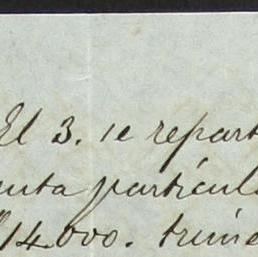 El 3. se repart
enta particula
14.000. trime